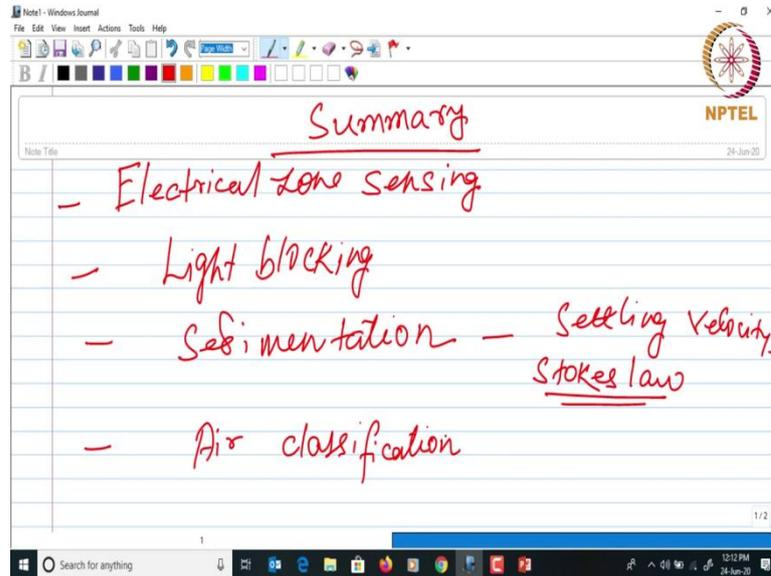 Note1 - Windows Journal
File Edit View Insert Actions Tools Help
Page Width
B I
NPTEL
Summary
Note Title
24-Jun-20
- Electrical zone sensing
- Light blocking
- Sedimentation - Settling Velocity,
Stokes law
- Air classification
1/2
1
Search for anything
12:12 PM
24-Jun-20